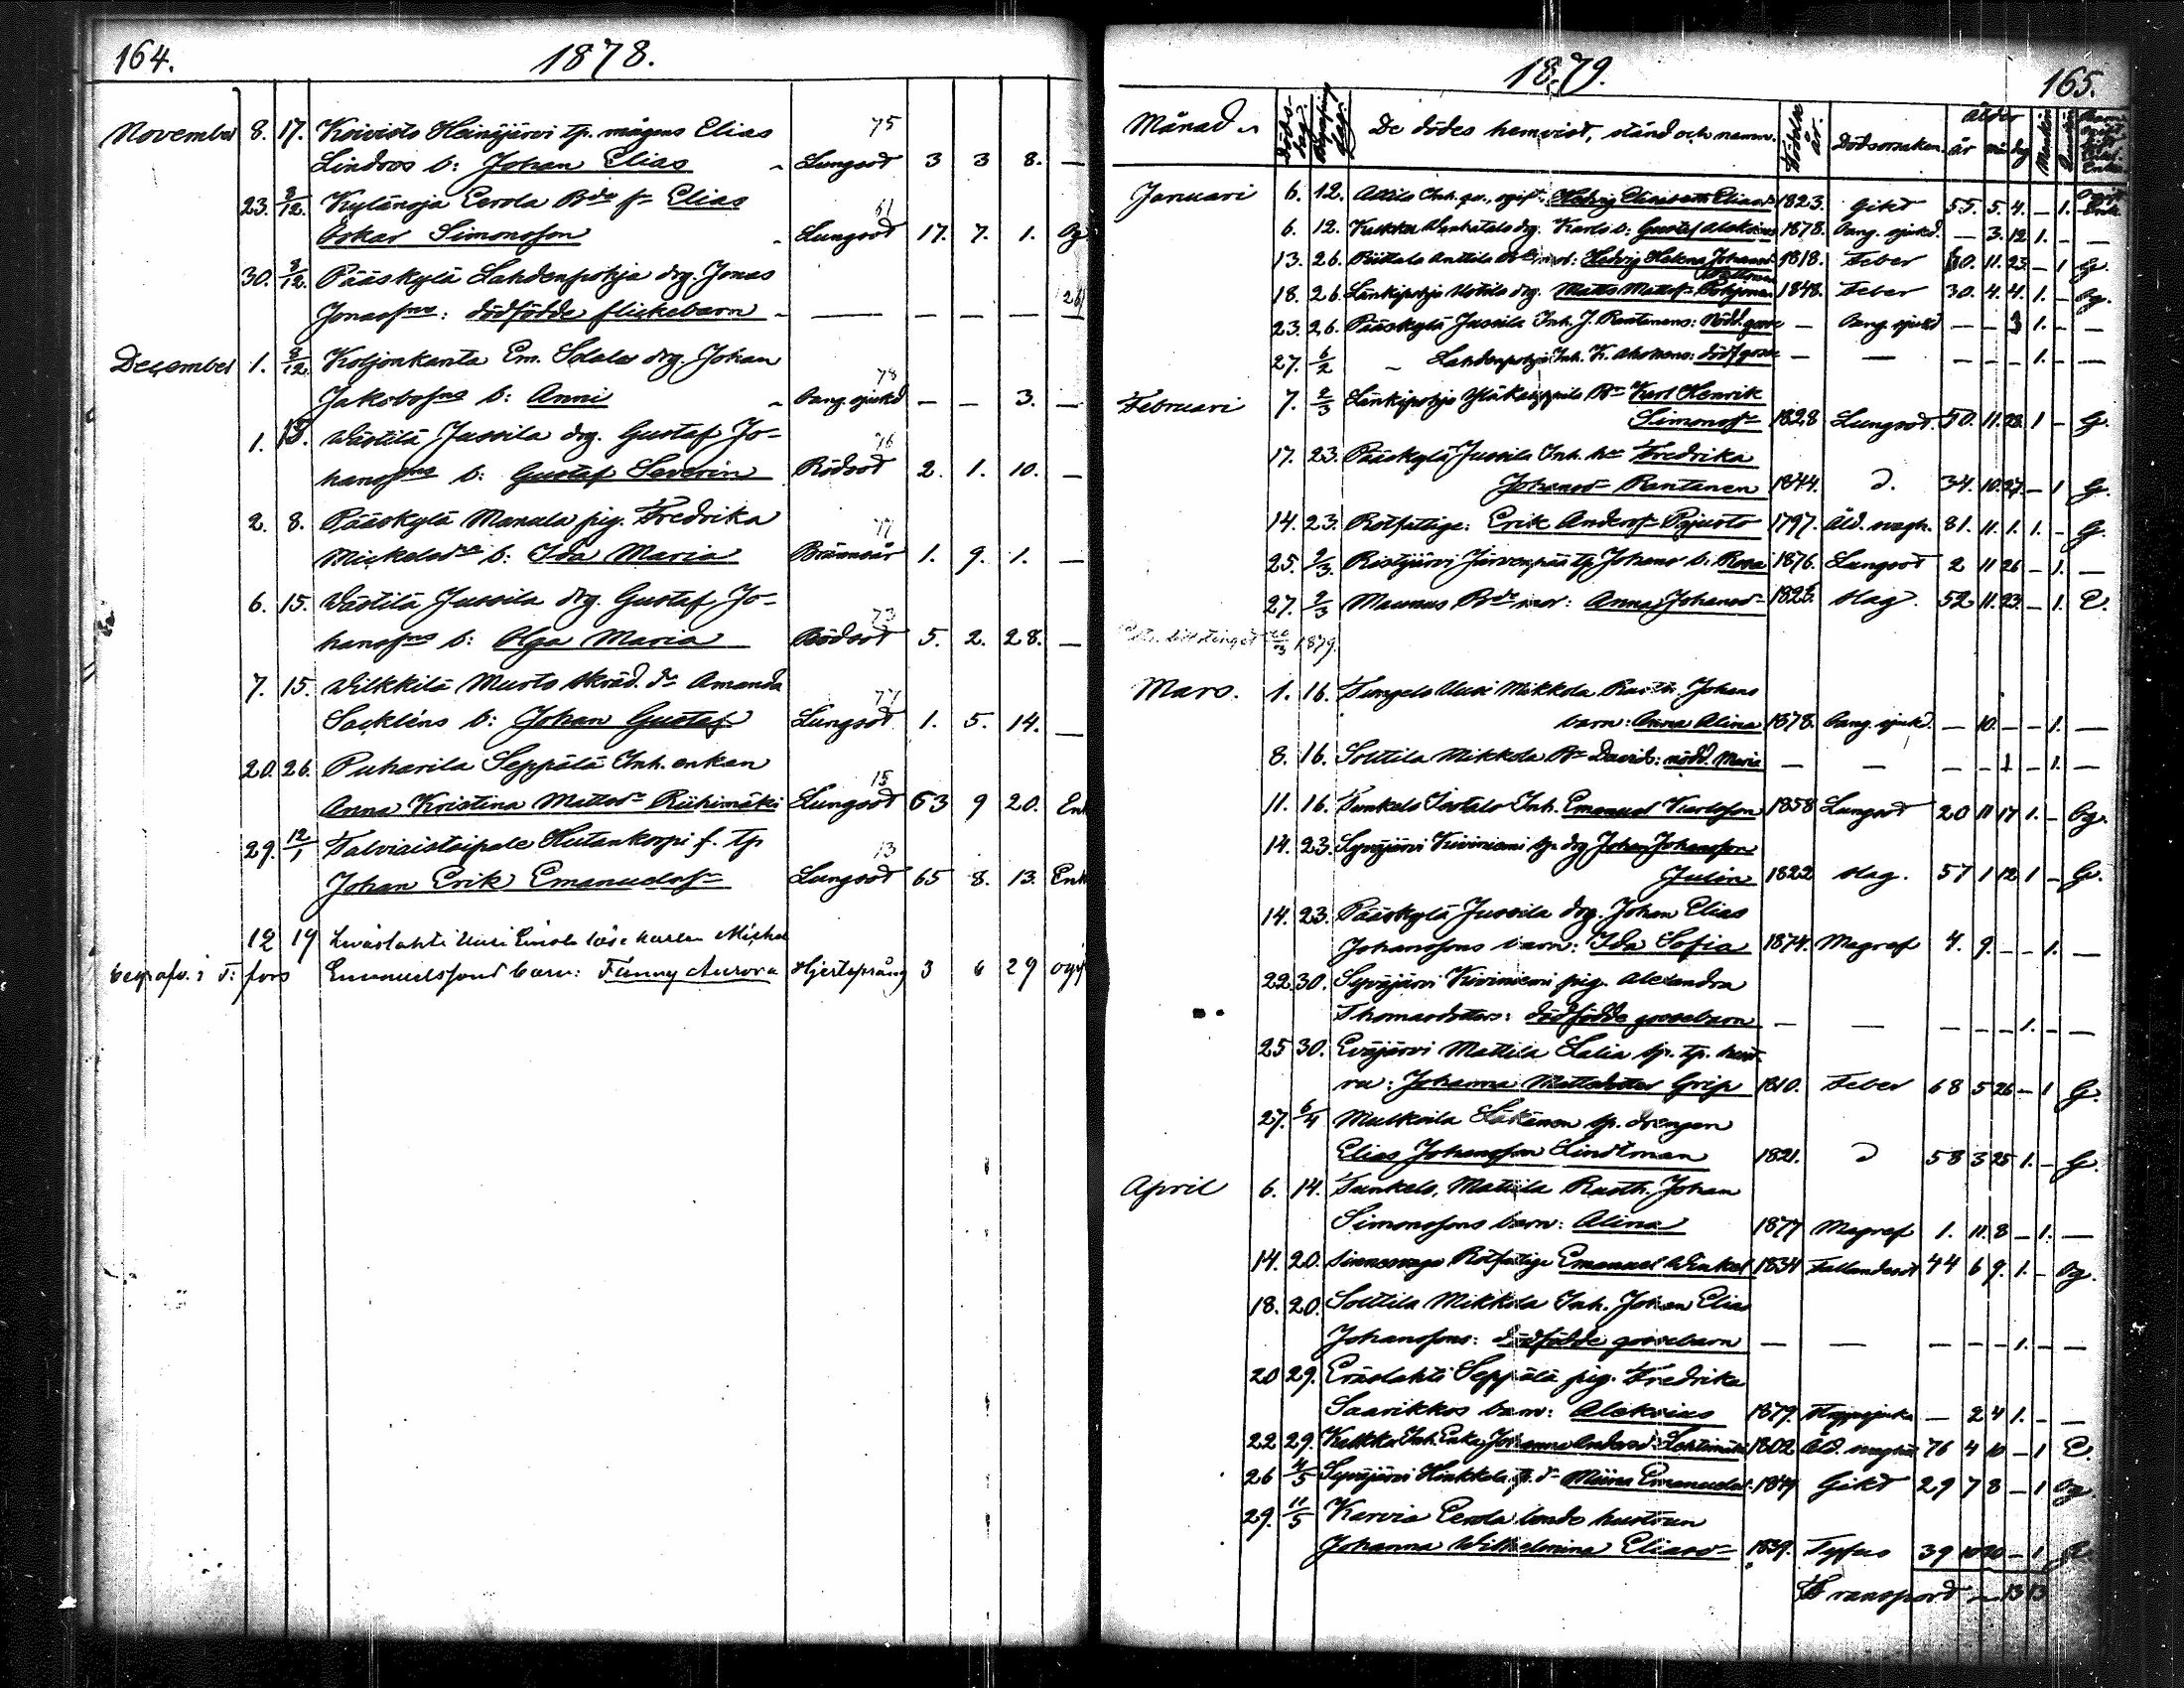 164.
1878.
November 8. 17. Koivisto Heinijärvi tp. mågens Elias 75
Lindroos b: Johan Elias Lungsot 3 3 8. —
23. 8/12. Kylänoja Eerola Bde s. Elias 61
Oskar Simonsson Lungsot 17. 7. 1. Og
30. 8/12. Pääskylä Lahdenpohja drg. Jonas
Jonassons: dödfödde flickebarn — — — —
December 1. 8/12 Koljonkanta Em. Solala drg. Johan
Jakobssons b: Anni 78 Bang. sjukd — — 3. —
1. 15. Västilä Jussila drg. Gustaf Jo- 76
hanssons b: Gustaf Severin Rödsot 2. 1. 10. —
2. 8. Pääskylä Manula pig. Fredrika 77
Mickelsdrs b: Ida Maria Brännsår 1. 9. 1. —
6. 15. Västilä Jussila drg. Gustaf Jo- 73
hanssons b: Olga Maria Rödsot 5. 2. 28. —
7. 15. Wilkkilä Musto skräd. dr Amanda 77
Sackléns b: Johan Gustaf Lungsot 1. 5. 14. —
20. 26. Puharila Seppälä Inh. enkan 15
Anna Kristina Mattsdr Riihimäki Lungsot 63 9 20. Enk
29. 12/1 Talviaistaipale Hietankorpi f. tp 13
Johan Erik Emanuelss. Lungsot 65 8. 13. Enk
12 19 Michel
begrafv. i T:fors Emanuelssons barn: Fanny Aurora Hjertsprång 3 6 29 ogift
1879.
165.
Månad Döds-dag. Begrafnings dag. De dödes hemvist, stånd och namn. Födelse år. Dödsorsaken. ålder år mån dag Mankön Qvinkön
Januari 6. 12. Attila Inh. qv., ogift: Hedvig Elisabeth Eliasd 1823. Gikt 55. 5. 4. — 1. Ogift
6. 12. Karlos b: Gustaf Aleksius 1878. Bang. sjukd. — 3. 12 1. — —
13. 26. Anttila Hedvig Helena Johansd 1818. Feber 60. 11. 23. — 1 G.
18. 26. Länkipohja Uotila drg. Matts Mattss. Pohjonen 1848. Feber 30. 4. 4. 1. — Og.
23. 26. Pääskylä Jussila Inh. J. Rantanens: Nödd. gosse — Bang. sjukd — — 3 1. — —
27. 6/2 " Lahdenpohja Inh. K. Ahosens: dödf gosse — — — — — 1. — —
Februari 7. 2/3 Länkipohja Yläkaippila Br Karl Henrik
Simonss. 1828 Lungsot. 50. 11. 28. 1 — G.
17. 23. Pääskylä Jussila Inh. hu Fredrika
Johansdr Rantanen 1844. D. 34. 10. 27. — 1 G.
14. 23. Rotfattige: Erik Anderss. Pajusto 1797. Åld. svagh. 81. 11. 1. 1. — G.
25. 2/3. Ristijärvi Järvenpää tp. Johans b. Rosa 1876. Lungsot 2 11 26 — 1. —
27. 2/3 Maunus Bde mor: Anna Johansdr 1826. Slag. 52 11. 23. — 1. E.
1879.
Mars. 1. 16. Sungela Uusi Mikkola Rusth. Johans
barn: Anna Alina 1878. Bang. sjukd. — 10. — — 1. —
8. 16. Solttila Mikkola Br Davids: nödd. Maria — — — — 1 — 1. —
11. 16. Tunkelo Inh. Emanuel Karlsson 1858 Lungsot 20 11 17 1. — Og.
14. 23. Syväjärvi Kiviniemi tp drg Johan Johansson
Julin 1822 Slag. 57 1 12 1 — G.
14. 23. Pääskylä Jussila drg. Johan Elias
Johanssons barn: Ida Sofia 1874. Magref 4. 9. — — 1. —
22. 30. Syväjärvi Kiviniemi pig. Alexandra
Thomasdotters: dödfödde gossebarn — — — — — 1. — —
25 30. Eväjärvi Mattila Lalia tp. hust-
ru: Johanna Mattsdotter Grip 1810. Feber 68 5 26 — 1 G.
27. 6/4 Mulkoila Säkänen tp. drengen
Elias Johansson Lindtman 1821. D 58 3 25 1. — G.
April 6. 14. Tunkelo, Mattila Rusth. Johan
Simonssons barn: Alina 1877 Magref 1. 11. 8 — 1. —
14. 20. Sinnessvage Rotfattige Emanuel Winkel 1834 Fallandesot 44 6 9. 1. — Og.
18. 20. Solttila Mikkola Inh. Johan Elias
Johanssons: dödfödde gossebarn — — — — — 1. — —
20 29. Eräslahti Seppälä pig. Fredrika
Saarikkos barn: Aleksius 1879. — 2 4 1. — —
22 29. Inh. Enka Johanna Andersd. Lehtimäki 1802 Åld. svaghet 76 4 10 — 1 E.
26 4/5 Syväjärvi Hinkkala tp. dr Miina Emanuelsd. 1849 Gikt 29 7 8 — 1 Og.
29. 11/5 Karvia Eerola bonde hustrun
Johanna Wilhelmina Eliasdr 1839. Tyfus 39 10 20 — 1 G.
Transport 13 13